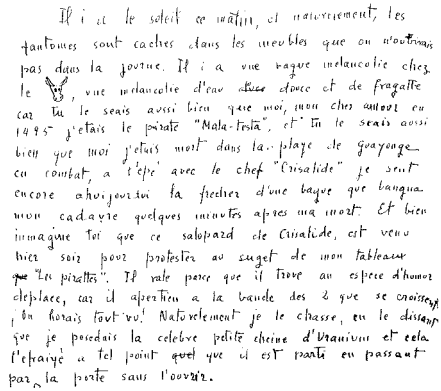 Il i a le soleil ce matin, et naturelement, les
fantomes sont cachés dans les meubles que on n'outvrais
pas dans la journe. Il i a vne vague melancolie chez
le , vne melancolie d'eau douce et de fragatte
car tu le seais avssi bien que moi, mon cher amour en
1495 j'etais le pirate "Mala-testa", et tu le seais aussi
bien que moi j'etais mort dans la playe de Guayonge
en combat, a l'épé avec le chef "Crisatide" je sent
encore ahuijourtui la frecher d'une vague que bangna
mon cadavre quelques minutes apres ma mort. Et bien
inmagine toi que ce salopard de Crisatide, est venu
hier soir pour protester au suget de mon tableaux
"Les pirattes". Il rale parce que il trove an espece d'humor
deplace, car il apertien a la bande des 2 que se croissent
¡ On horais tout vu! Naturelement je le chasse, en le dissant
que je posedais la celebre petite cheine d'Uranium et cela
l'efraiyé a tel point que il est parti en passant
par la porte sans l'ouvrir.